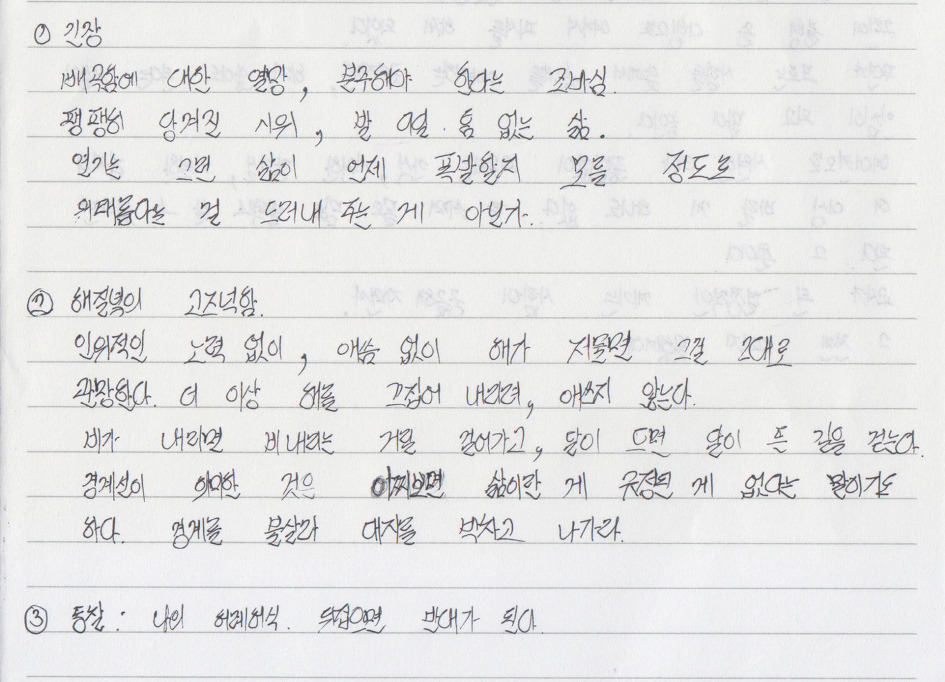 ① 긴장
배국함에 대한 열망, 분주해야 한다는 조바심.
팽팽히 당겨진 시위, 발 디딜 틈 없는 삶.
연기는 그런 삶이 언제 폭발할지 모를 정도로
위태롭다는 걸 드러내 주는 게 아닐까.
② 해질녘의 고즈넉함.
인위적인 노력 없이, 애씀 없이 해가 저물면 그걸 그대로
관망한다. 더 이상 해를 끄집어 내리려, 애쓰지 않는다.
비가 내리면 비내리는 거릴 걸어가고, 달이 뜨면 달이 뜬 길을 걷는다.
경계선이 희미한 것은 어찌보면 삶이란 게 규정된 게 없다는 말이기도
하다. 경계를 불살라 대지를 박차고 나가라.
③ 통찰 : 나의 허례허식. 뒤집으면 반대가 된다.